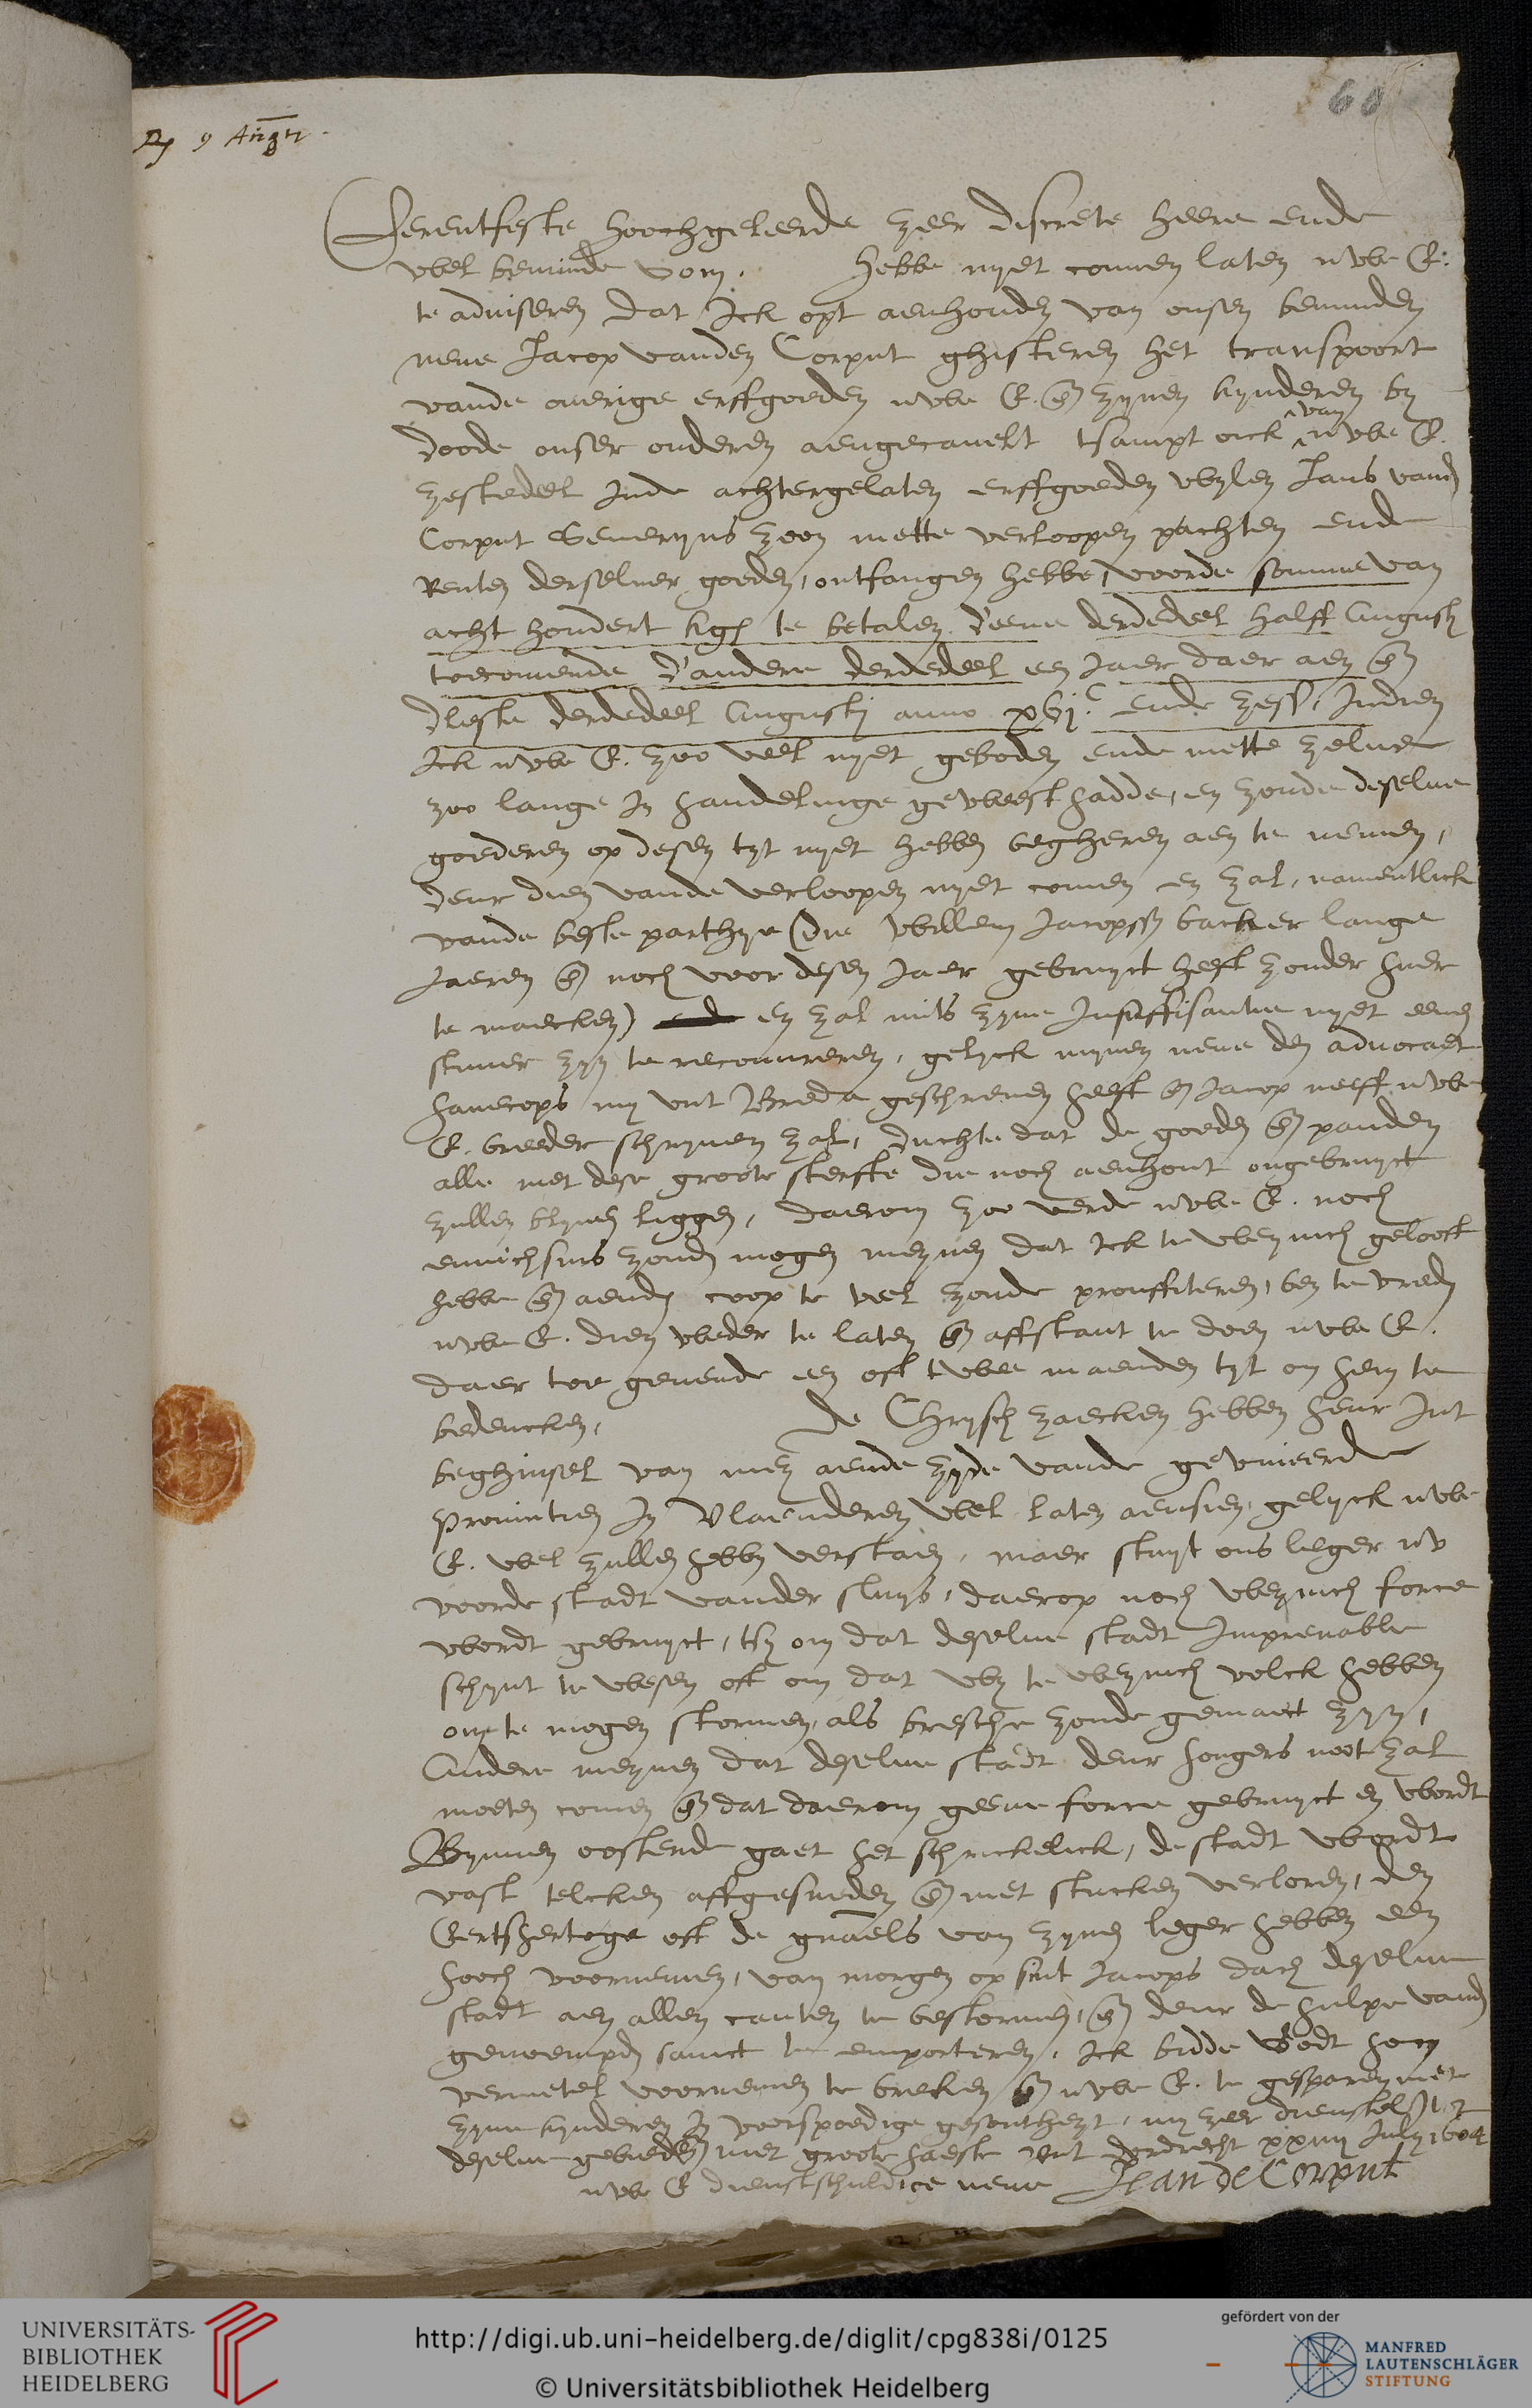 60
9 Aug
Eerentfeste hoochgeleerde zeer discrete heere ende
wel beminde oom. Hebbe nyet connen laten uwe E.
te adviseren dat ick opt aenhouden van onsen beminden
neve Jacop vanden Corput ghisteren het transpoort
vande overige erffgoeden uwe E. en zynen kynderen by
doode onser ouderen aengecavelt tsampt oick van uwe E.
zestedeel inde achtergelaten erffgoeden wylen Jans vand
Corput Severyns zoon mette verloopen pachten ende
Renten derselver goeden, ontfangen hebbe, voorde somme van
acht hondert kg te betalen d'eene derdedeel halff Augusti
toecomende d'andere derdedeel een Jaer daer aen en
dleste derdedeel Augusti anno xvjc ende zess, Indien
ick uwe E. zoo veel nyet geboden ende mette zelve
zoo lange in handelinge geweest hadde, en zoude deselve
goederen op desen tyt nyet hebben begheren aen te nemen,
deur dien vande verloopen nyet comen en zal, namentlick
vande beste parthye (die Willem Jacopss backer lange
Jaeren en noch voor desen Jaer gebruyct heeft zonder huer
te maecken) en zal mits zyne Insuffisantie nyet eenen
stuver zyn te recouvreren, gelyck mynen neve den advocaet
havecops my uut Breda geschreven heeft en Jacop neeff uwe
E. breeder schryven zal, duchte dat de goeden en panden
alle met dese groote sterfte die noch aenhout ongebruyct
zullen blyven liggen, daerom zoo verde uwe E. noch
eenichsins zoude mogen meynen dat ick te weynich gelooft
hebbe en aenden coop te veel zoude prouffiteren, ben te vreden
uwe E. dien weder te laten en affstant te doen uwe E.
daer toe gevende een oft twee maenden tyt om hem te
bedencken, de Chrysch zaecken hebben heur int
beghinsel van mey aende zyde vande geunieerde
Provintien in Vlaenderen wel laten aensien, gelyck uwe
E. wel zullen hebben verstaen, maer stuyt ons leger nu
voorde stadt vander sluys, daerop noch weynich force
wordt gebruyct, tsy om dat deselve stadt Imprenable
schynt te wesen oft om dat wy te weynich volck hebben
om te mogen stormen, als bresche zoude gemaect zyn,
Andere meynen dat deselve stadt deur hongers noot zal
moeten comen en dat daerom geene force gebruyct en wordt
Bynnen oostende gaet het schrickelick, de stadt wordt
vast telcken affgesneden en met stucken verloren, den
Eertshertoge oft de gnaels van zynen leger hebben een
hooch voornemen, van morgen op sint Jacops dach deselve
stadt aen allen canten te bestormen, en deur de hulpe vanden
genoempden sanct te emporteren. Ick bidde Godt hem
vermetel voornemen te breken en uwe E. te gesparen met
zyne kynderen in voorspoedige gesontheyt, my zeer dienstel
deselve gebied en met groote haeste uut dordrecht xxiiij July 1604
uwe E dienstschuldige neve Jean de Corput
UNIVERSITÄTS-
BIBLIOTHEK
HEIDELBERG
http://digi.ub.uni-heidelberg.de/diglit/cpg838i/0125
© Universitätsbibliothek Heidelberg
gefördert von der
MANFRED
LAUTENSCHLÄGER
STIFTUNG